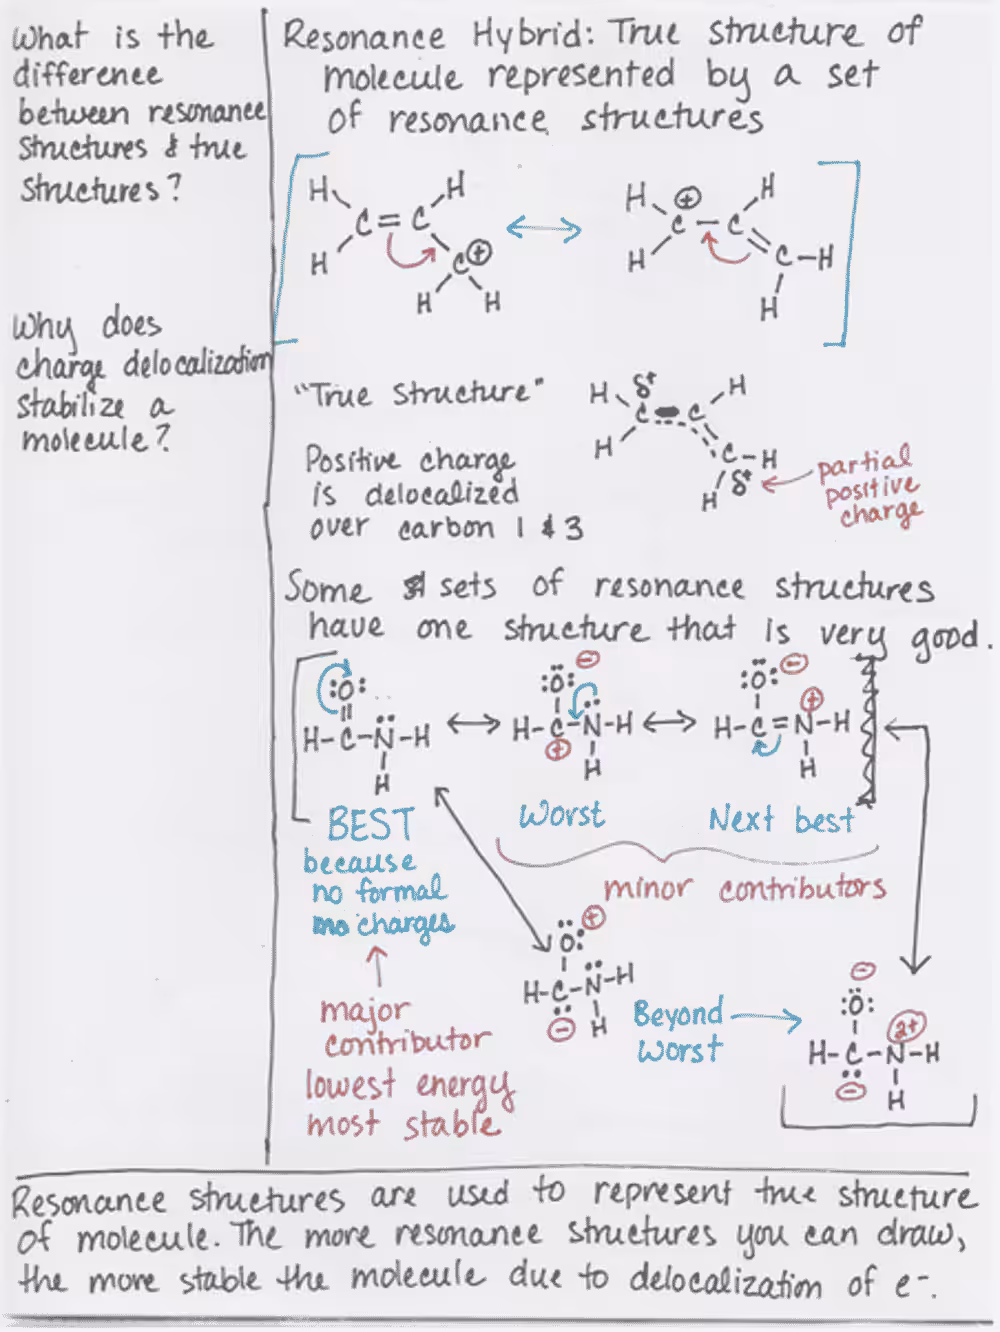 What is the
difference
between resonance
structures & true
structures?
Why does
charge delocalization
stabilize a
molecule?
Resonance Hybrid: True structure of
molecule represented by a set
of resonance structures
H H H ⊕ H
C = C C - C
H C ⊕ H C - H
H H H
"True Structure"
H δ+ H
C C
H C - H
H δ+
Positive charge
is delocalized
over carbon 1 & 3
partial
positive
charge
Some sets of resonance structures
have one structure that is very good.
:O: :Ö: ⊖ :Ö: ⊖
H-C-N̈-H H-C-N̈-H H-C=N-H
⊕ ⊕
H H H
BEST
because
no formal
charges
Worst
Next best
minor contributors
major
contributor
lowest energy
most stable
Ö: ⊕
H-C-N̈-H
⊖ H
Beyond
worst
⊖
:Ö:
2+
H-C-N-H
⊖ H
Resonance structures are used to represent true structure
of molecule. The more resonance structures you can draw,
the more stable the molecule due to delocalization of e⁻.